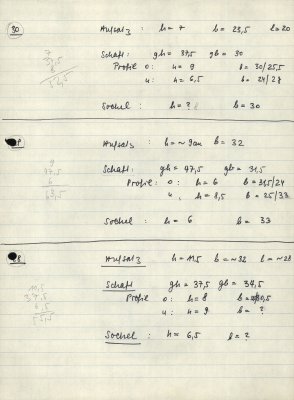 30 Aufsatz : h = 7 b = 23,5 l = 20
Schaft: gh = 37,5 gb = 30
7
37,5
8
52,5
Profil o: h = 9 b = 30/25,5
u: h = 6,5 b = 24/27
Sockel : h = ? 8 b = 30
Aufsatz : h = ~9cm b = 32
Schaft: gh = 47,5 gb = 31,5
9
47,5
6
Profil o: h = 6 b = 31,5/24
u, h = 8,5 b = 25/33
Sockel : h = 6 b = 33
28 Aufsatz h = 11,5 b = ~32 l = ~28
Schaft gh = 37,5 gb = 34,5
11,5
37,5
6,5
55,5
Profil o: h = 8
u: h = 9 b = ?
Sockel: h = 6,5 b = ?